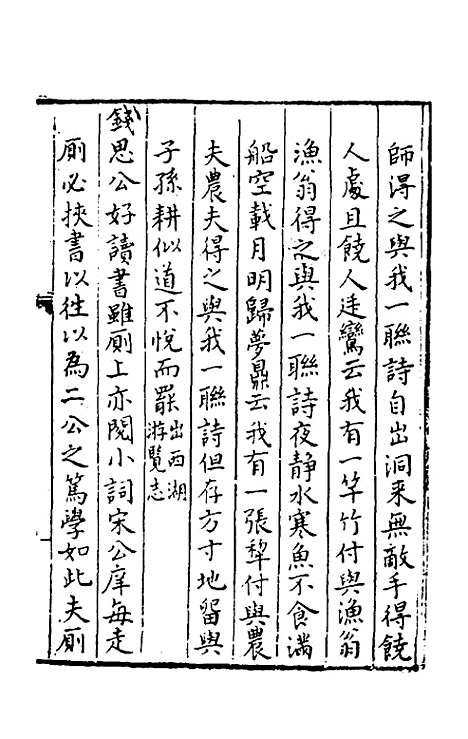 師淂之與我一聯詩自出洞来無敵手得饒
人處且饒人廷鸞云我有一竿竹付與漁翁
漁翁得之與我一聯詩夜静水寒魚不食滿
船空載月明歸夢鼎云我有一張犁付與農
夫農夫得之與我一聯詩但存方寸地留與
子孫耕似道不悅而罷出西湖游覽志
錢思公好讀書雖厠上亦閱小詞宋公庠每走
厠必挾書以往以為二公之篤學如此夫厠